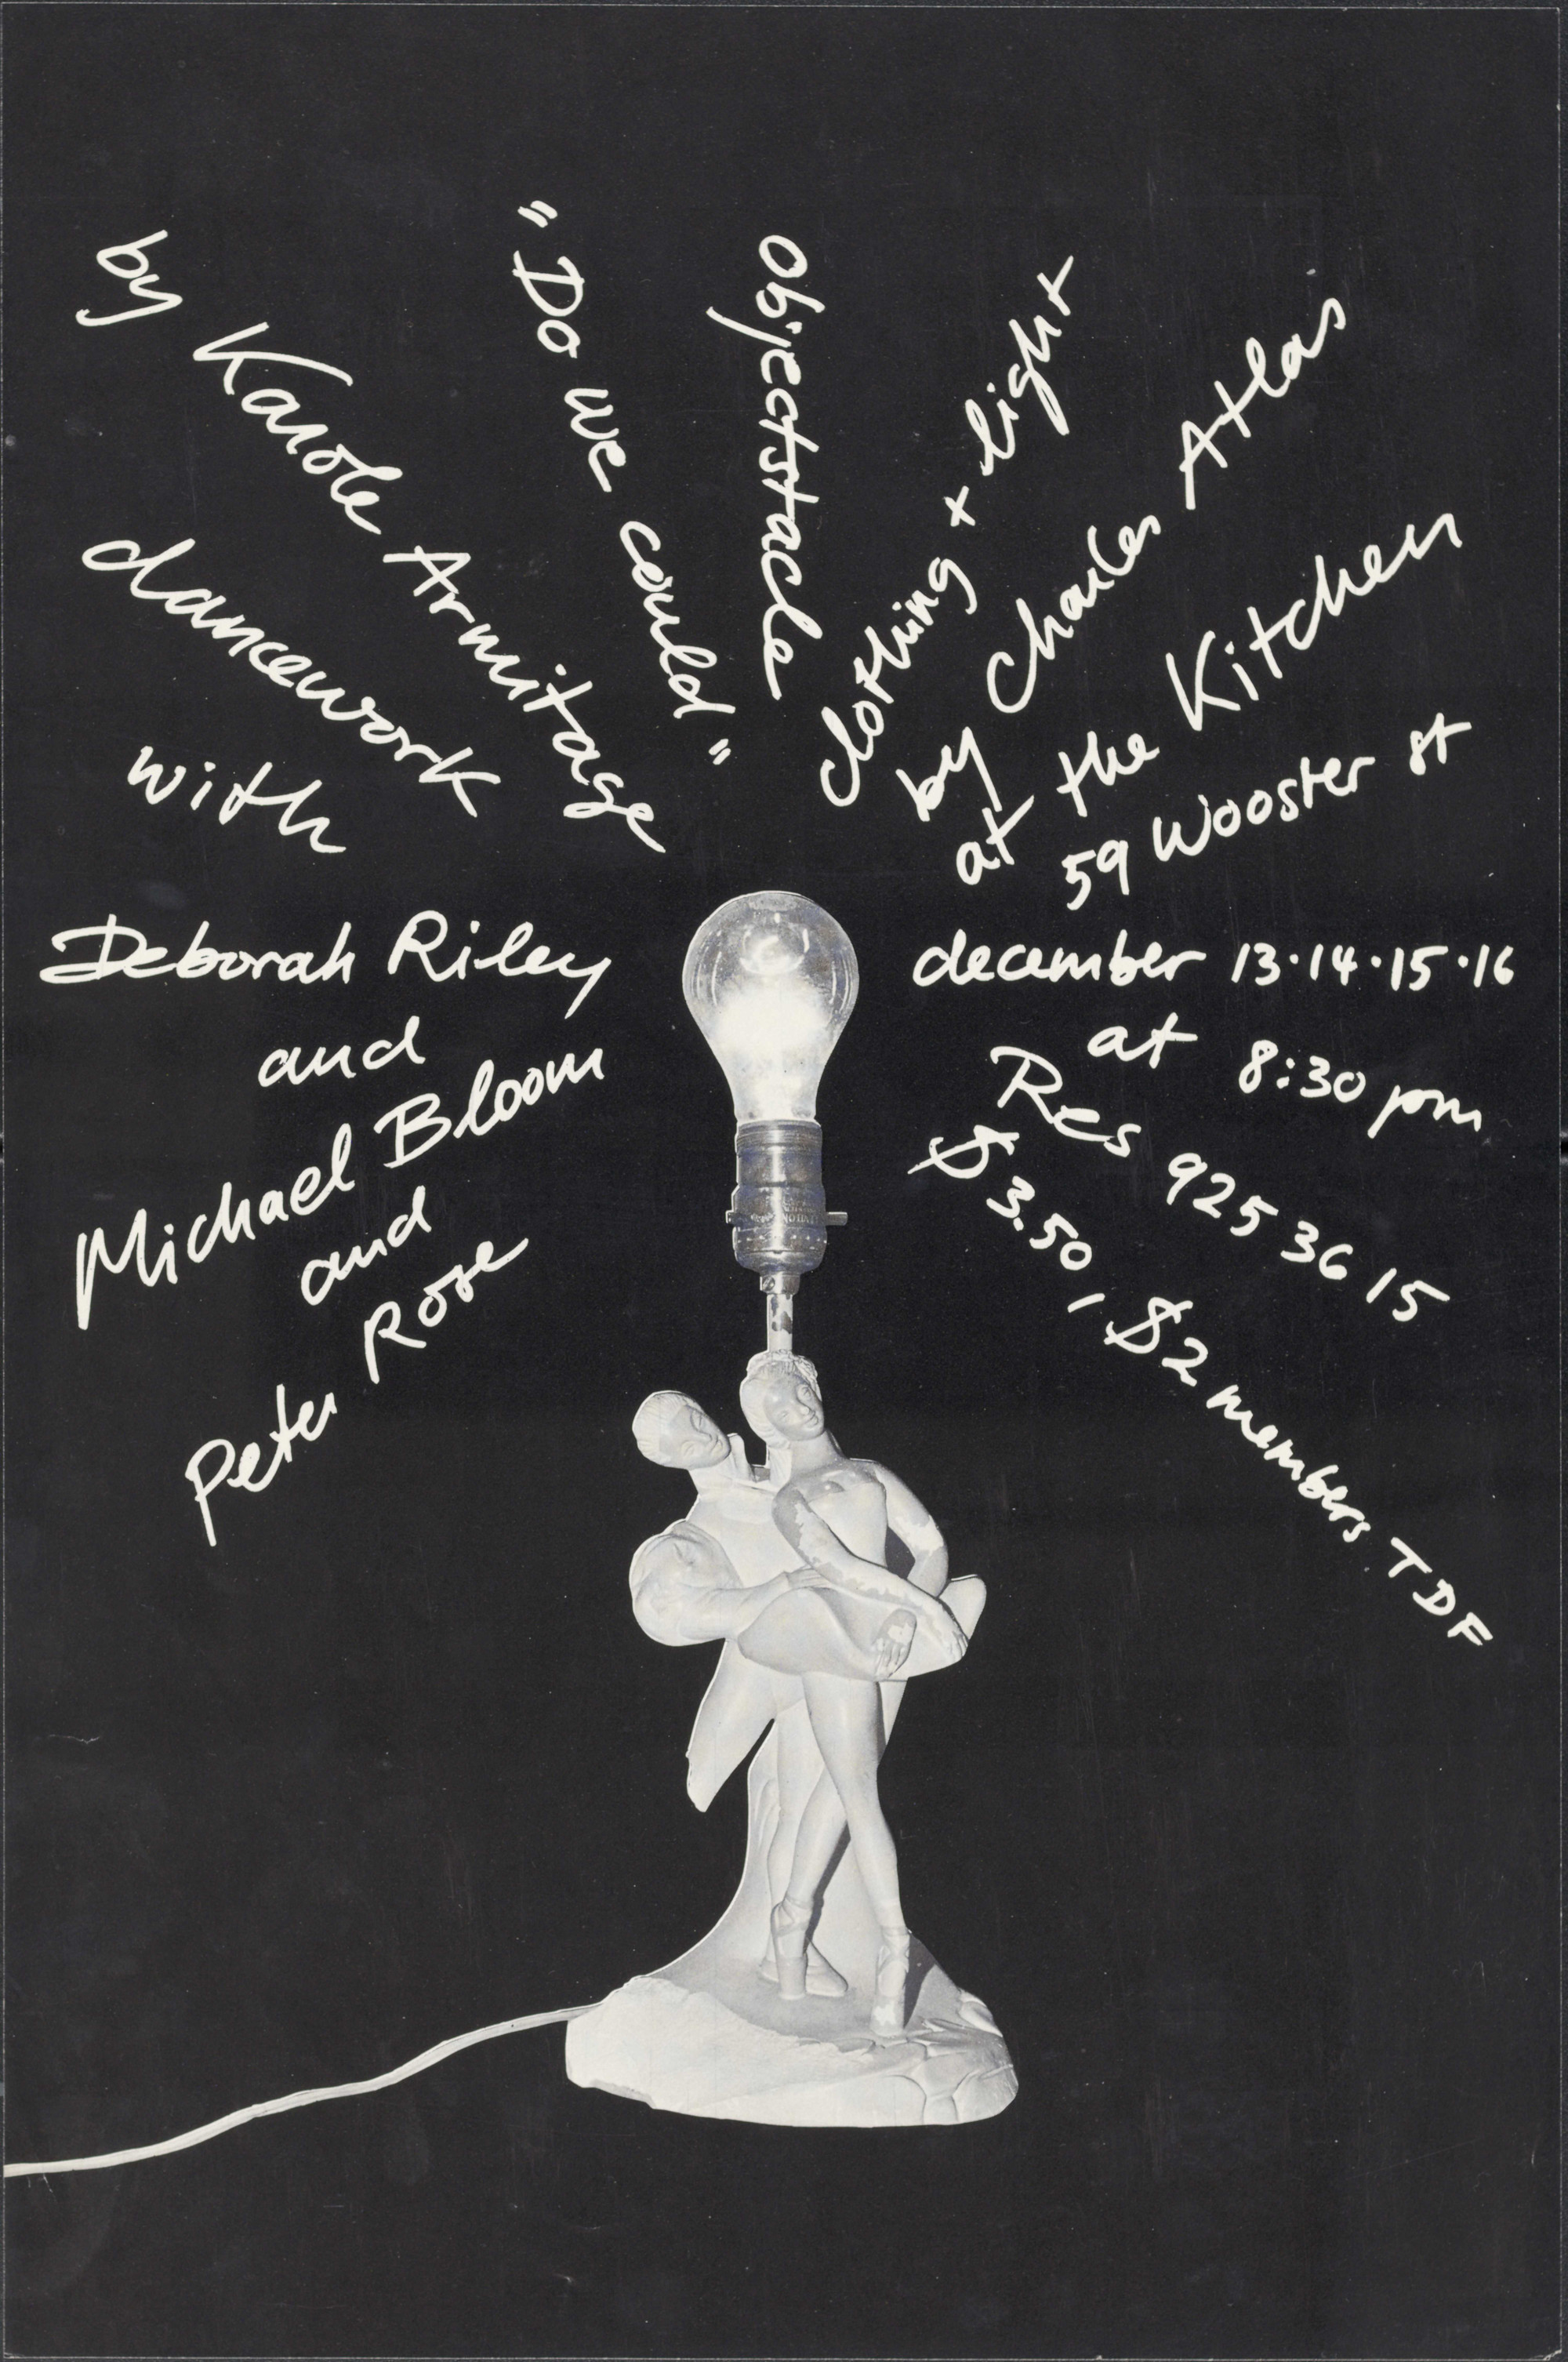 "Do we could"
by Karole Armitage
dancework
with
Deborah Riley
and
Michael Bloom
and
Peter Rose
objectstacle
clothing + light
by Charles Atlas
at the Kitchen
59 Wooster st
december 13·14·15·16
at 8:30 pm
Res 925 36 15
$3.50, $2 members TDF